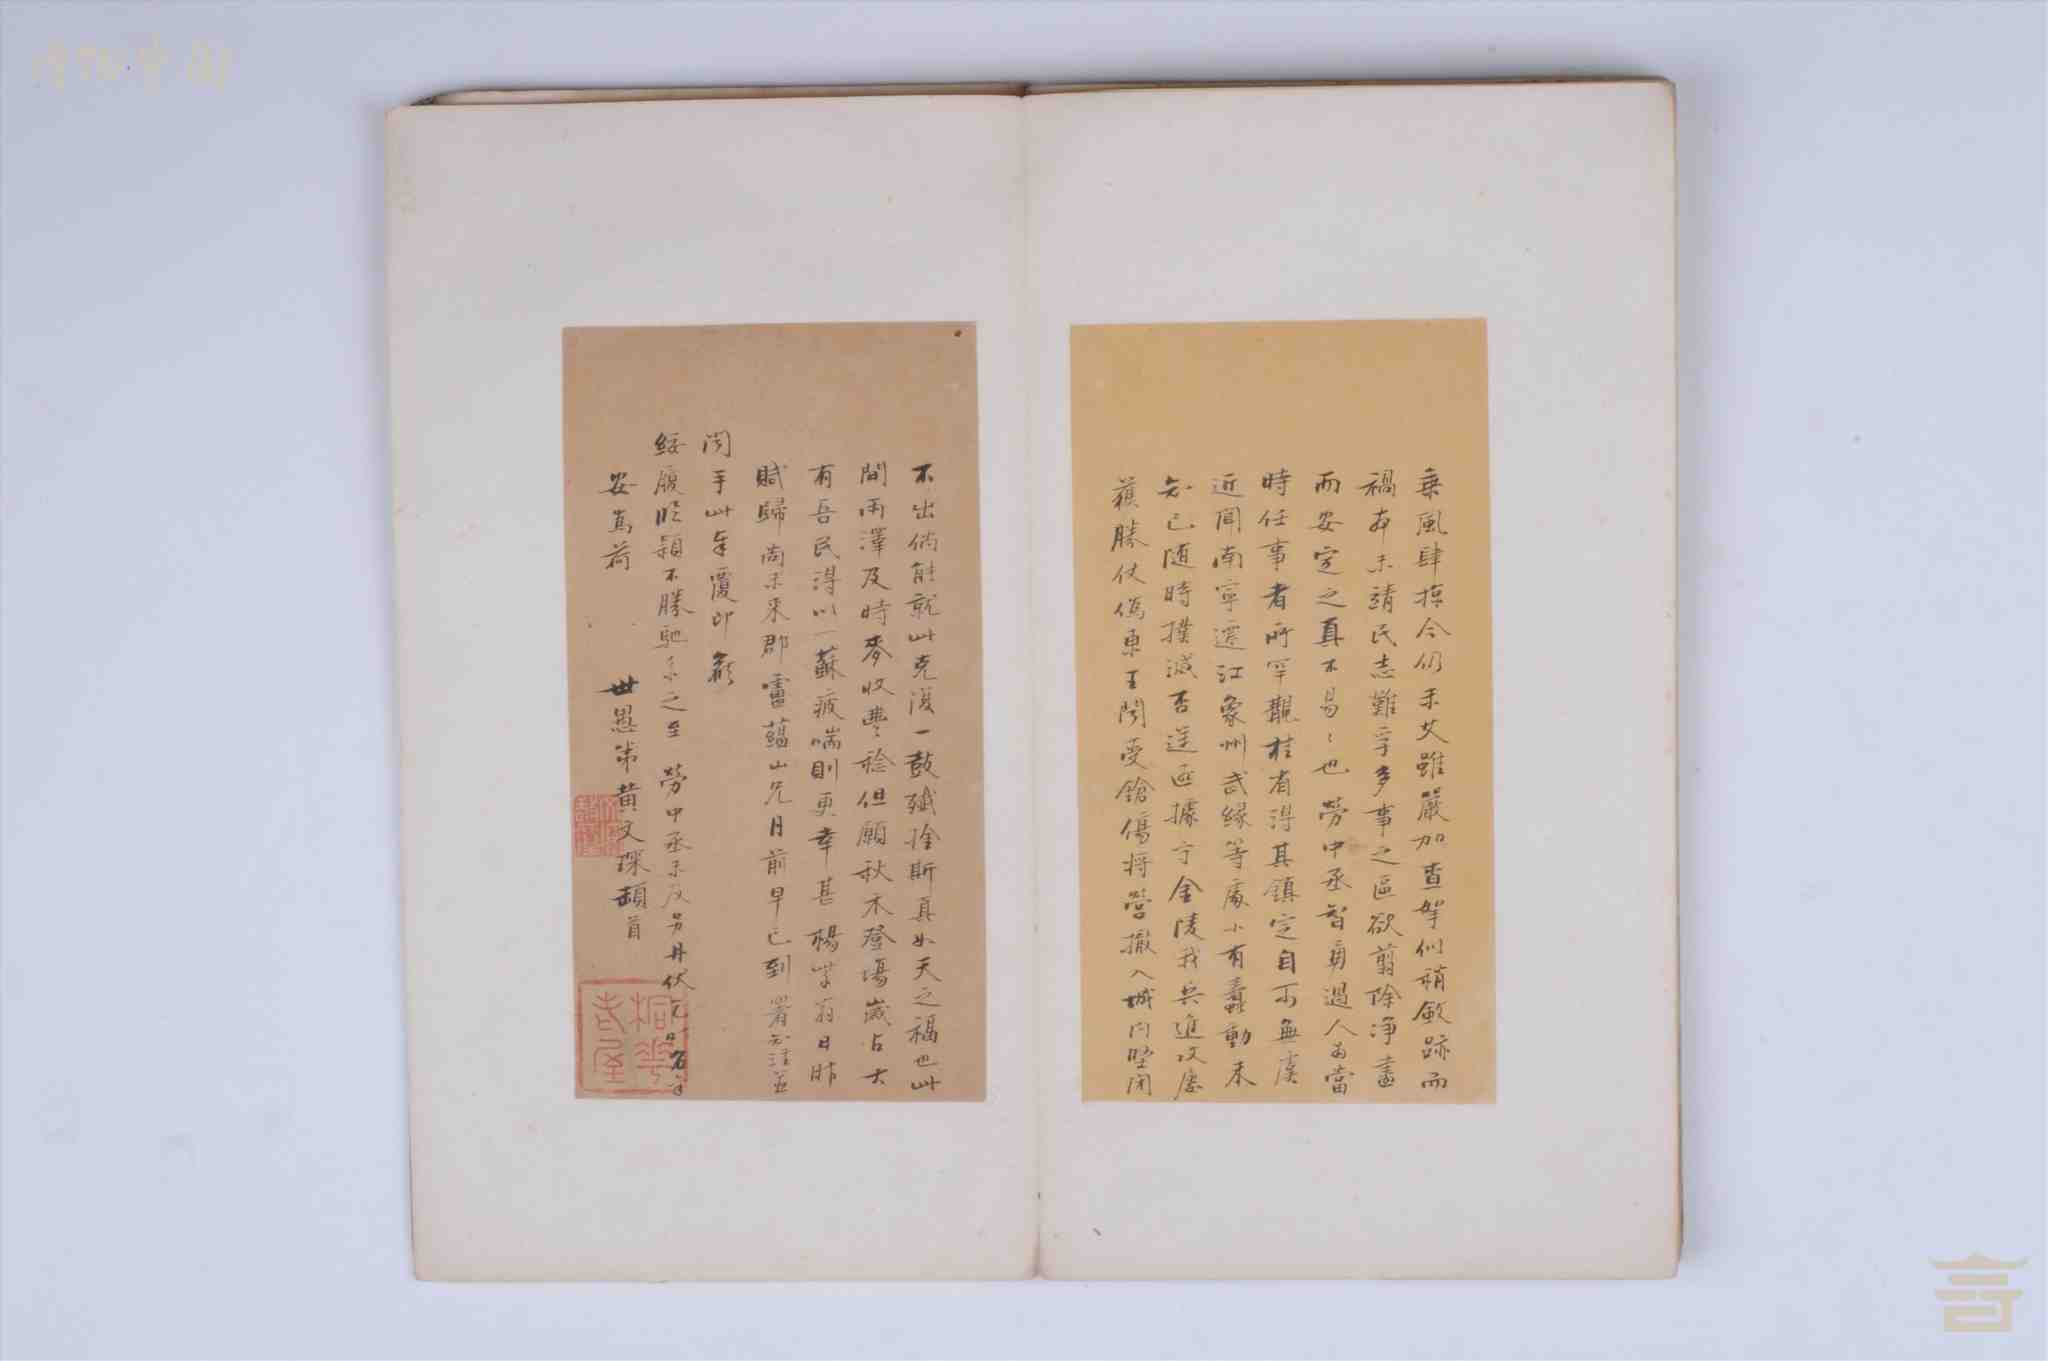 乘風肆掠今仍未艾雖嚴加查拏似稍斂跡而
禍本未靖民志難孚多事之區欲翦除淨盡
而安定之真不易々也勞中丞智勇過人為當
時任事者所罕覯桂省得其鎮定自可無虞
近聞南寧遷江象州武緣等處小有蠢動未
知已隨時撲滅否逆匪據守金陵我兵進攻屢
獲勝仗偽東王聞受鎗傷將營撤入城門堅閉
不出倘能就此克復一鼓殲擒斯真如天之福也此
間雨澤及時麥收豐稔但願秋禾登場歲占大
有吾民得以一蘇疲喘則更幸甚楊紫翁日昨
賦歸尚未來郡雷蘊山兄月前早已到署知注並
聞手此奉覆即頌
綏履臨穎不勝馳系之至勞中丞未及另丹伏
安為荷
世愚弟黃文琛頓首
桐華
老屋